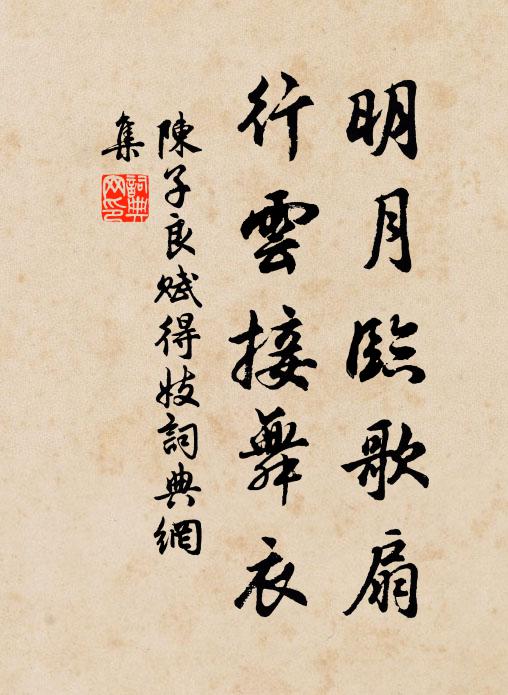 明月臨歌扇
行雲接舞衣
陳子良賦得妓詞典網
集
詞典
网印